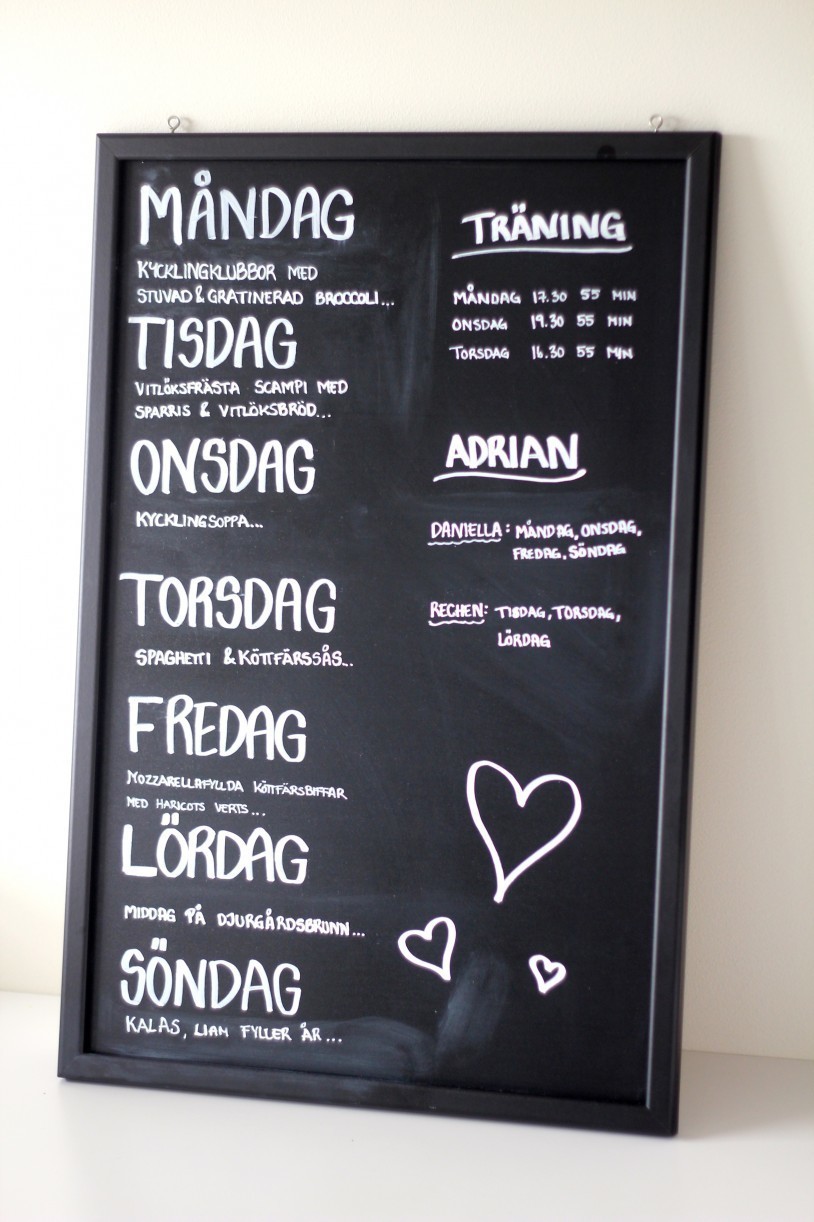 MÅNDAG
KYCKLINGKLUBBOR MED
STUVAD & GRATINERAD BROCCOLI...
TISDAG
VITLÖKSFRÄSTA SCAMPI MED
SPARRIS & VITLÖKSBRÖD...
ONSDAG
KYCKLINGSOPPA...
TORSDAG
SPAGHETTI & KÖTTFÄRSSÅS...
FREDAG
MOZZARELLAFYLLDA KÖTTFÄRSBIFFAR
MED HARICOTS VERTS...
LÖRDAG
MIDDAG PÅ DJURGÅRDSBRUNN...
SÖNDAG
KALAS, LIAM FYLLER ÅR...
TRÄNING
MÅNDAG 17.30 55 MIN
ONSDAG 19.30 55 MIN
TORSDAG 16.30 55 MIN
ADRIAN
DANIELLA: MÅNDAG, ONSDAG,
FREDAG, SÖNDAG
RECHEN: TISDAG, TORSDAG,
LÖRDAG